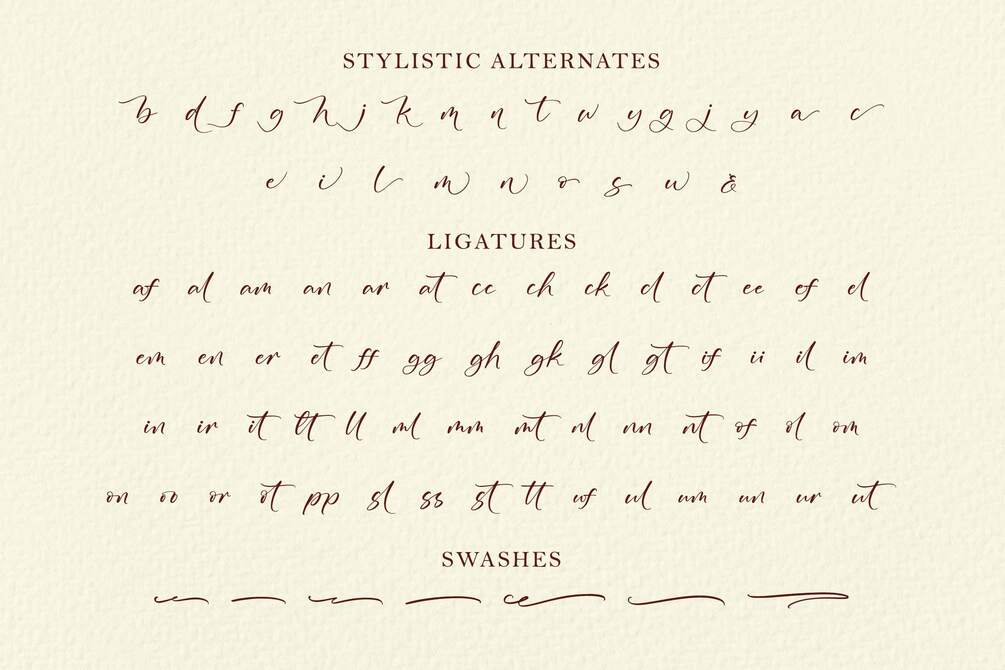 STYLISTIC ALTERNATES
b d f g h j k m n t w y g j y a c
e i l m n o s u &
LIGATURES
af al am an ar at cc ch ck cl ct ee ef el
em en er et ff gg gh gk gl gt if ii il im
in ir it lt ll ml mm mt nl nn nt of ol om
on oo or ot pp sl ss st tt uf ul um un ur ut
SWASHES